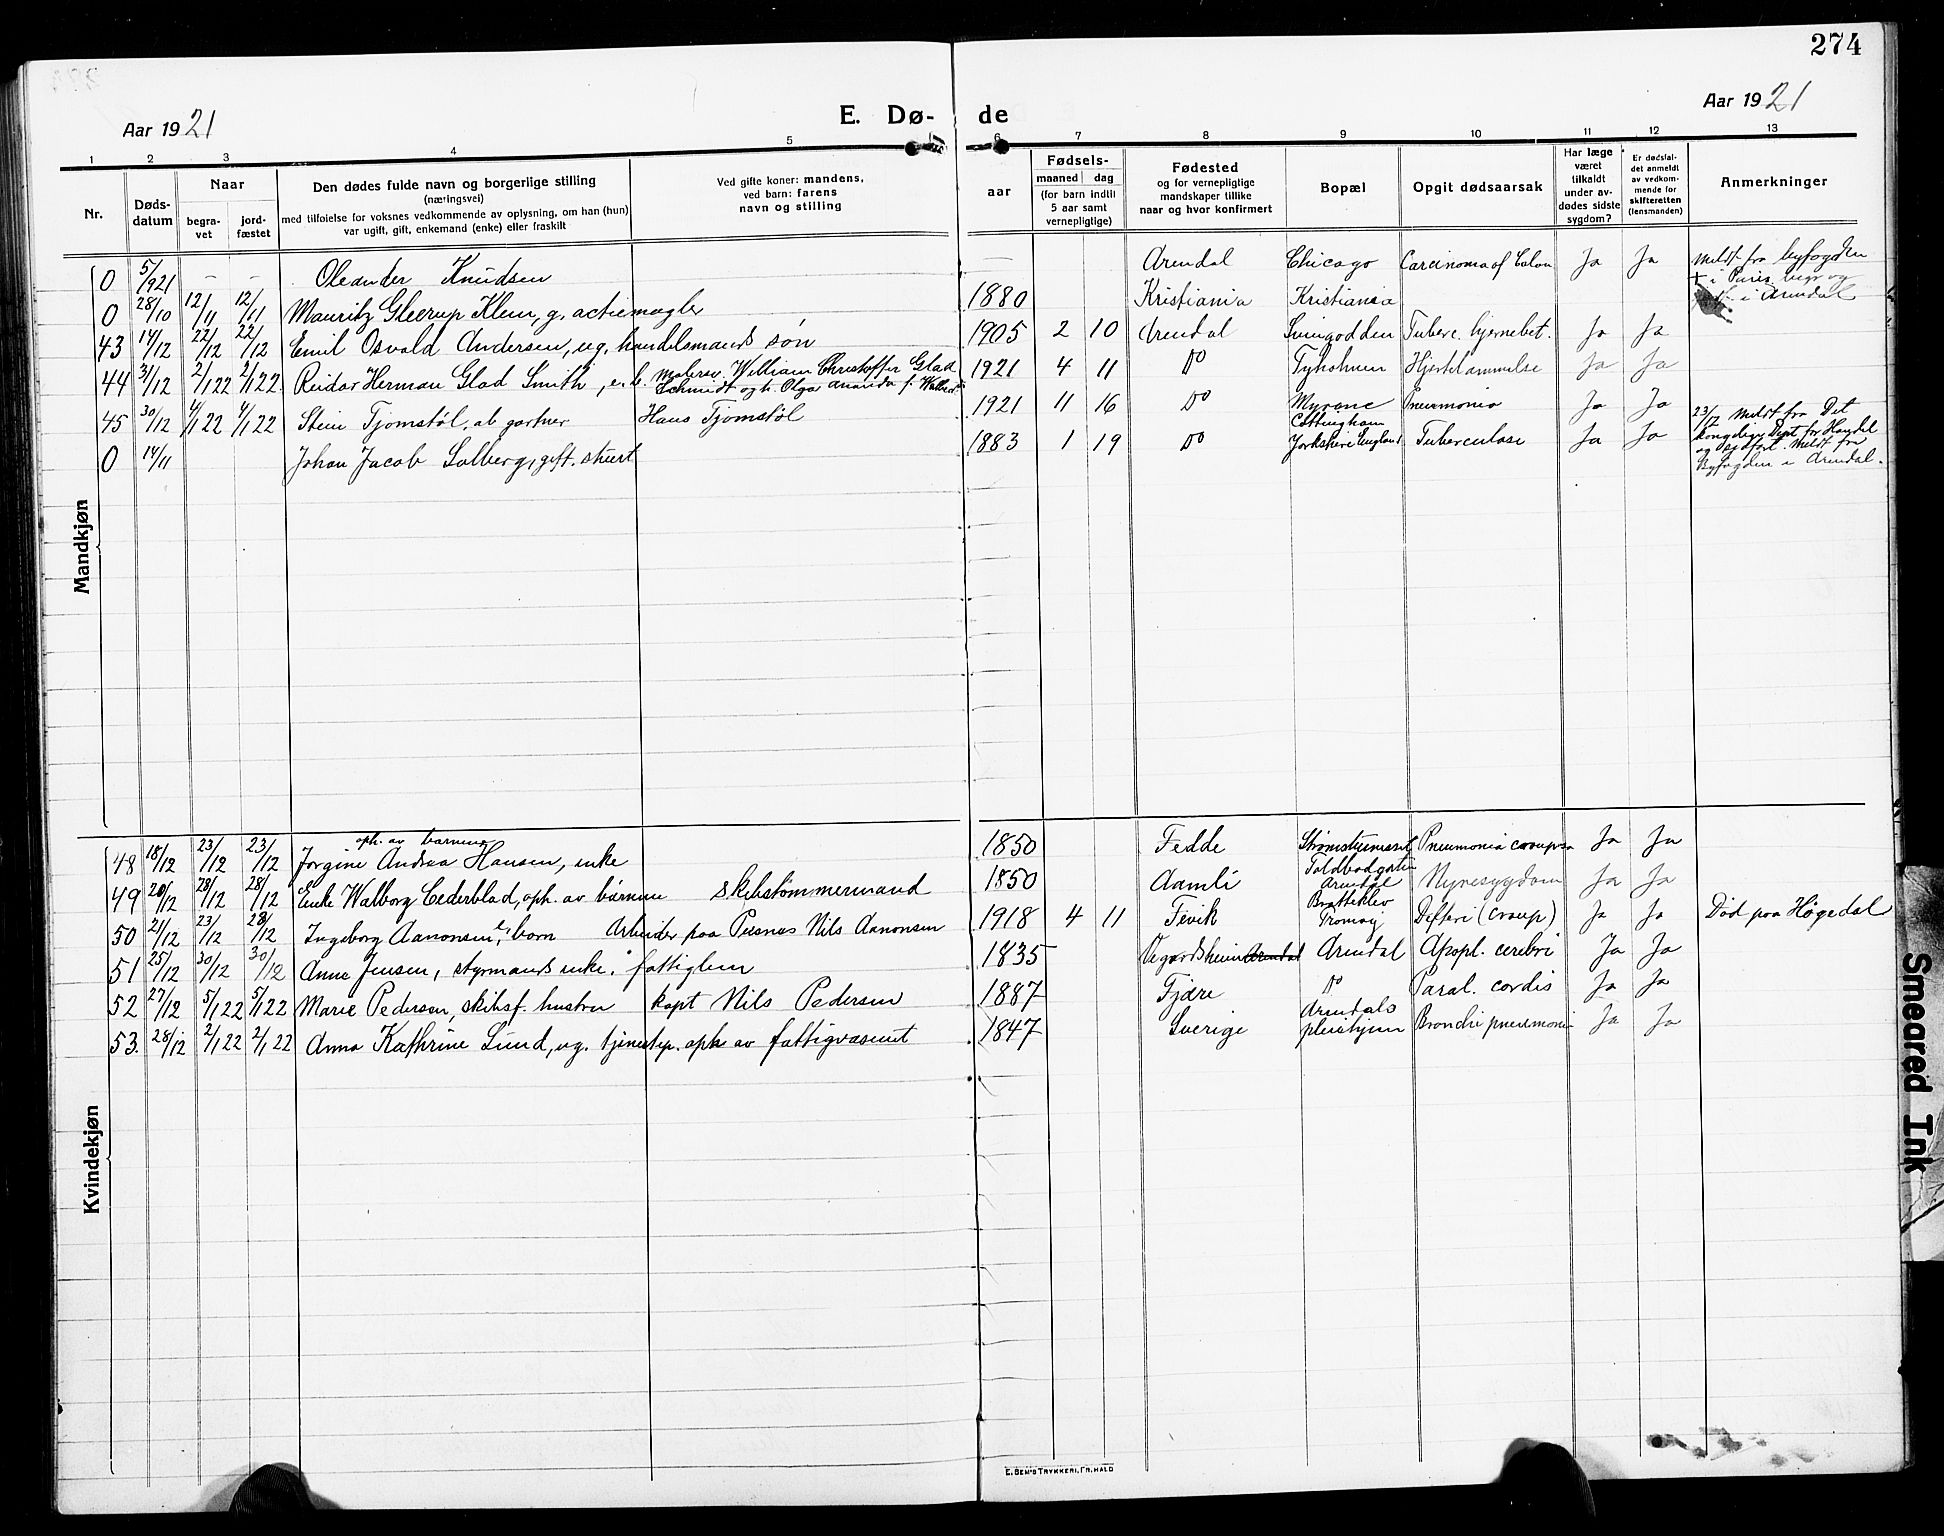 274
Aar 1921
E. Dø-
de
Aar 1921
1 2 3 4 5 6 7 8 9 10 11 12 13
Nr.
Døds-
datum
Naar
begra-
vet
jord-
fæstet
Den dødes fulde navn og borgerlige stilling
(næringsvei)
med tilføielse for voksnes vedkommende av oplysning, om han (hun)
var ugift, gift, enkemand (enke) eller fraskilt
Ved gifte koner: mandens,
ved barn: farens
navn og stilling
Fødsels-
aar
maaned dag
(for barn indtil
5 aar samt
vernepligtige)
Fødested
og for vernepligtige
mandskaper tillike
naar og hvor konfirmert
Bopæl
Opgit dødsaarsak
Har læge
været
tilkaldt
under av-
dødes sidste
sygdom?
Er dødsfal-
det anmeldt
av vedkom-
mende for
skifteretten
(lensmanden)
Anmerkninger
Mandkjøn
0 5/9 21 - - Oleander Knudsen Arendal Chicago Carcinoma of Colon Ja Ja Meldt fra byfogden
0 28/10 12/11 12/11 Mauritz Gleerup Klem, g. actiemægler 1880 Kristiania Kristiania + i Paris, begr og
i Arendal
43 14/12 22/12 22/12 Emil Osvald Andersen, ug. handelsmands søn 1905 2 10 Arendal Svingodden Tuberc. hjernebet. Ja Ja
44 31/12 2/1 22 2/1 22. Reidar Herman Glad Smith, e. b. Malersv. William Christoffer Glad
Schmidt og h. Olga Amanda f. 1921 4 11 Do Tyholmen Hjertelammelse Ja Ja
45 30/12 4/1 22 4/1 22 Stein Tjomstøl, ab gartner Hans Tjomstøl 1921 11 16 Do Myrene Pneumonia Ja Ja
0 14/11 Johan Jacob Solberg, gift. stuert 1883 1 19 Do Cottingham
Yorkshire England Tuberculose Ja Ja 23/12 Meldt fra Det
kongelige Dept for Handel
og Meldt fra
Byfogden i Arendal.
Kvindekjøn
48 18/12 23/12 23/12 oph. av barnene
Jorgine Andrea Hansen, enke 1850 Fedde Strømsbusneset Pneumonia crouposa Ja Ja
49 20/12 28/12 28/12 Enke Walborg Cederblad, oph. av børnene skibstømmermand 1850 Aamli Toldbodgaten
Arendal Nyresygdom Ja Ja
50 21/12 23/12 28/12 Ingeborg Aanonsen, e. barn Arbeider paa Pusnes Nils Aanonsen 1918 4 11 Fevik Bratteklev
Tromøy Difteri (croup) Ja Ja Død paa Høgedal
51 25/12 30/12 30/12 Anne Jensen, styrmands enke, fattiglem 1835 Vegaardsheien Arendal Arendal Apopl. cerebri Ja Ja
52 27/12 5/1 22 5/1 22 Marie Pedersen, skibsf. hustru kapt Nils Pedersen 1887 Fjære Do Paral. cordis Ja Ja
53. 28/12 2/1 22 2/1 22 Anna Kathrine Lund, ug. tjenestep. oph av fattigvæsenet 1847 Sverige Arendals
pleiehjem Bronchi pneumoni Ja Ja
E. Sem's Trykkeri, Fr.hald
Smeared Ink